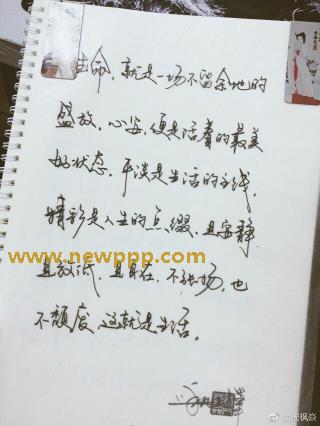 生命,就是一场不留余地的
盛放。心安,便是活着的最美
好状态。平淡是生活的主线,
精彩是人生的点缀,且安静,
且放低,且自在,不张扬,也
不颓废,这就是生活。
www.newppp.com
@周枫焱